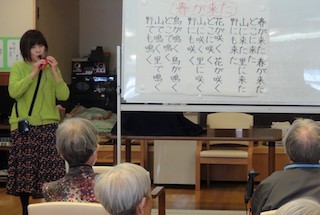 春が来た
春が来た 春が来た
どこに来た
山に来た 里に来た
野にも来た
花が咲く 花が咲く
どこに咲く
山に咲く 里に咲く
野にも咲く
鳥が鳴く 鳥が鳴く
どこで鳴く
山で鳴く 里で鳴く
野でも鳴く